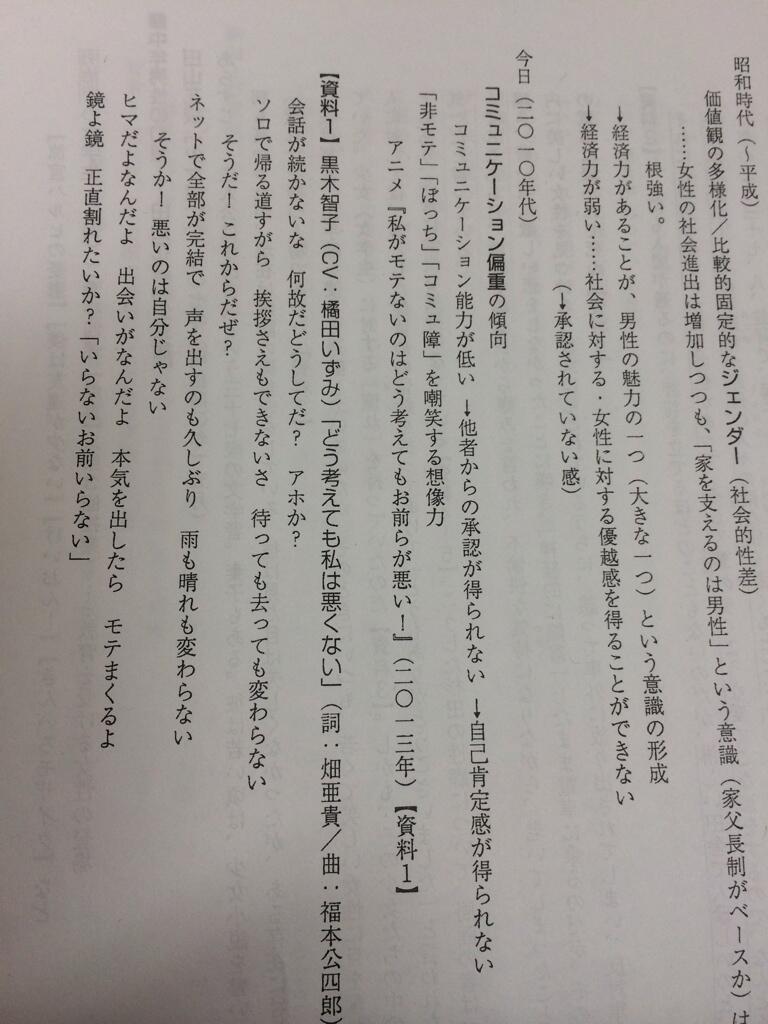 昭和時代（～平成）
価値観の多様化／比較的固定的なジェンダー（社会的性差）
……女性の社会進出は増加しつつも、「家を支えるのは男性」という意識（家父長制がベースか）は
根強い。
→経済力があることが、男性の魅力の一つ（大きな一つ）という意識の形成
→経済力が弱い……社会に対する・女性に対する優越感を得ることができない
（→承認されていない感）
今日（二〇一〇年代）
コミュニケーション偏重の傾向
コミュニケーション能力が低い　→他者からの承認が得られない　→自己肯定感が得られない
「非モテ」「ぼっち」「コミュ障」を嘲笑する想像力
アニメ『私がモテないのはどう考えてもお前らが悪い！』（二〇一三年）【資料１】
【資料１】黒木智子（CV：橘田いずみ）「どう考えても私は悪くない」（詞：畑亜貴／曲：福本公四郎）
会話が続かないな　何故だどうしてだ？　アホか？
ソロで帰る道すがら　挨拶さえもできないさ　待っても去っても変わらない
そうだ！これからだぜ？
ネットで全部が完結で　声を出すのも久しぶり　雨も晴れも変わらない
そうか！悪いのは自分じゃない
ヒマだよなんだよ　出会いがなんだよ　本気を出したら　モテまくるよ
鏡よ鏡　正直割れたいか？「いらないお前いらない」